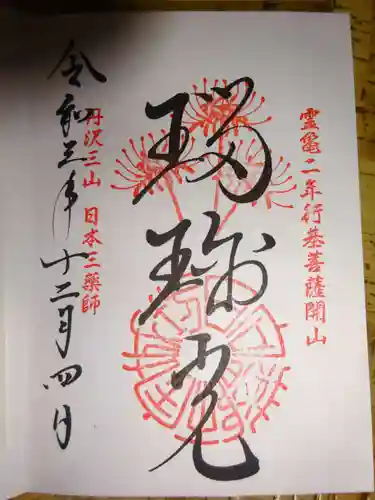 霊亀二年行基菩薩開山
瑠璃光
丹沢三山 日本三薬師
令和三年十二月四日